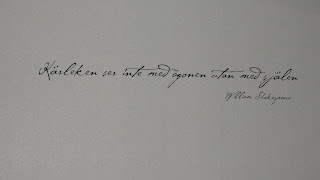 Kärleken ser inte med ögonen utan med själen
William Shakespeare